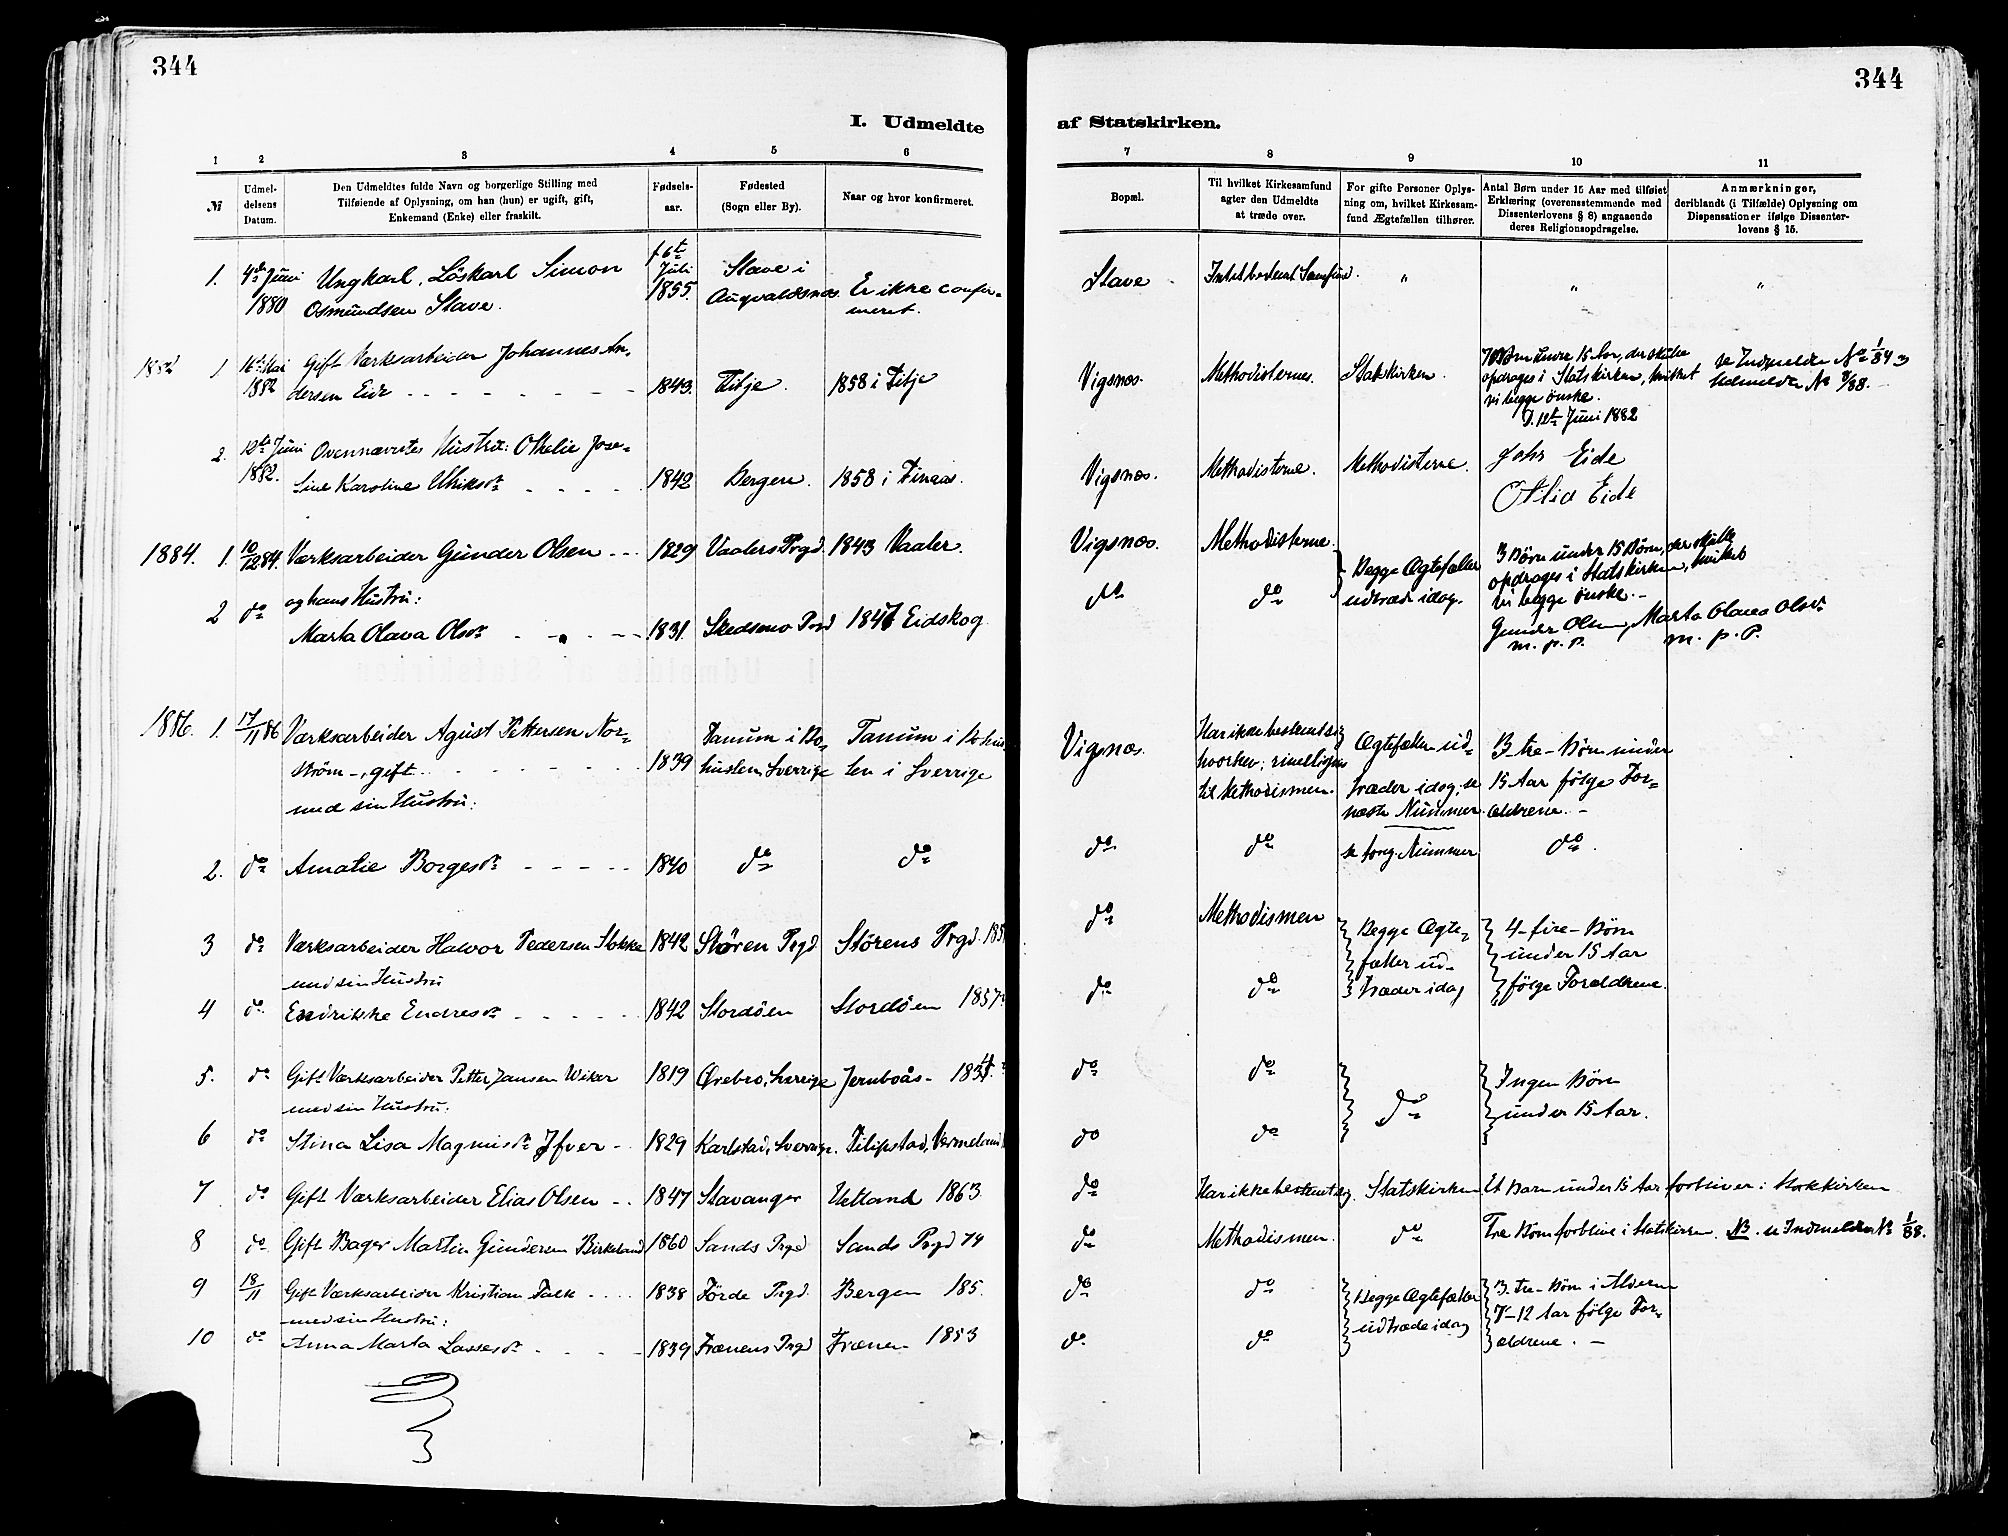 344
I. Udmeldte
1 2 3 4 5 6
№
Udmel-
delsens
Datum.
Den Udmeldtes fulde Navn og borgerlige Stilling med
Tilføiende af Oplysning, om han (hun) er ugift, gift,
Enkemand (Enke) eller fraskilt.
Fødsels-
aar.
Fødested
(Sogn eller By).
Naar og hvor konfirmeret.
1. 4de Juni 1880 Ungkarl, Löskarl Simon
Osmundsen Stave.
f. 6t Juli 1855. Stave i
Augvaldsnæs Er ikke confir-
meret.
1882 1 16de Mai 1882 Gift Værksarbeider Johannes An-
dersen Eide 1843. Fitje. 1858 i Fitje
2. 12te Juni 1882. Ovennævntes Hustru: Othelie Jose-
fine Karoline 1842 Bergen. 1858 i Finaas.
1884. 1. 10/12 84. Værksarbeider Gunder Olsen 1829 Vaalers Prgd. 1843 Vaaler.
og hans Hustru:
2 do Marta Olava Olsdr 1831. Skedsmo Prgd 1847 Eidskog
1886. 1. 17/11 86 Værksarbeider Agust Pettersen Nor-
ström -, gift 1839 Tanum i Bo-
huslen, Sverrige Tanum i Bohus
len i Sverrige
med sin Hustru:
2. do Amalie Borgesdr 1840 do do
3 do Værksarbeider Halvor Pedersen Stokke 1842 Støren Prgd Störens Prgd. 185
med sin Hustru
4 do Endrikke Endresdr 1842 Stordöen Stordöen 1857
5. do Gift Værksarbeider Petter Jansen Wiker 1819 Ørebro, Sverige Jernboås - 183
med sin Hustru:
6 do Stina Lisa Magnusdr Ifver 1829 Karlstad, Sverrige. Filipstad, Vermeland
7 do Gift Værksarbeider Elias Olsen 1847 Stavanger Hetland 1863
8 do Gift Bager Martin Gundersen Birkeland 1860 Sands Prgd Sands Prgd 74
9 18/11 Gift Værksarbeider Kristian Falk 1838 Förde Prgd. Bergen 185.
med sin Hustru:
10 do Anna Marta Lassesdr 1839 Frænens Prgd Frænen 1853
344
af Statskirken.
7 8 9 10 11
Bopæl.
Til hvilket Kirkesamfund
agter den Udmeldte
at træde over.
For gifte Personer Oplys-
ning om, hvilket Kirkesam-
fund Ægtefællen tilhører.
Antal Børn under 15 Aar med tilføiet
Erklæring (overensstemmende med
Dissenterlovens § 8) angaaende
deres Religionsopdragelse.
Anmærkninger,
deriblandt (i Tilfælde) Oplysning om
Dispensationer ifølge Dissenter-
lovens § 15.
Stave Intet bestemt Samfund. " " "
Vigsnæs. Methodisternes. Statskirken.
Børn under 15 Aar, der skulle
opdrages i Statskirken, hvilket
vi begge önske.
D. 12te Juni 1882
se Indmeldte No 1/84 og
Udmeldte No 8/88.
Vigsnæs. Methodisterne. Methodisterne. Johs Eide
Otilia Eide
Vigsnæs. Methodisterne.
do do
Begge Ægtefæller
udtræde idag.
3 Børn under 15 Børn, der skulle
opdrages i Statskirken, hvilket
vi begge önske. -
Gunder Olsen, Marta Olava Olsdr
m. p. P. m. p. P.
Vigsnæs.
Har ikke bestemt sig
hvorhen; rimeligvis
til Methodismen.
Ægtefællen ud-
træder idag; se
næste Nummer
3 - tre - Børn under
15 Aar følge For-
ældrene. -
do do se forrg. Nummer do
do Methodismen
do do
Begge Ægte-
fæller ud-
træder idag
4 - fire - Børn
under 15 Aar
følge Forældrene.
do do
do do
do
Ingen Børn
under 15 Aar.
do Har ikke bestemt sig. Statskirken Et Barn under 15 Aar forbliver i Statskirken
do Methodismen. do Tre Børn forblive i Statskirken. NB. se Indmeldte No 1/88.
do do
do do
Begge Ægtefæller
udtræde idag
3. tre - Børn i Alderen
7 - 12 Aar følge For-
ældrene. -